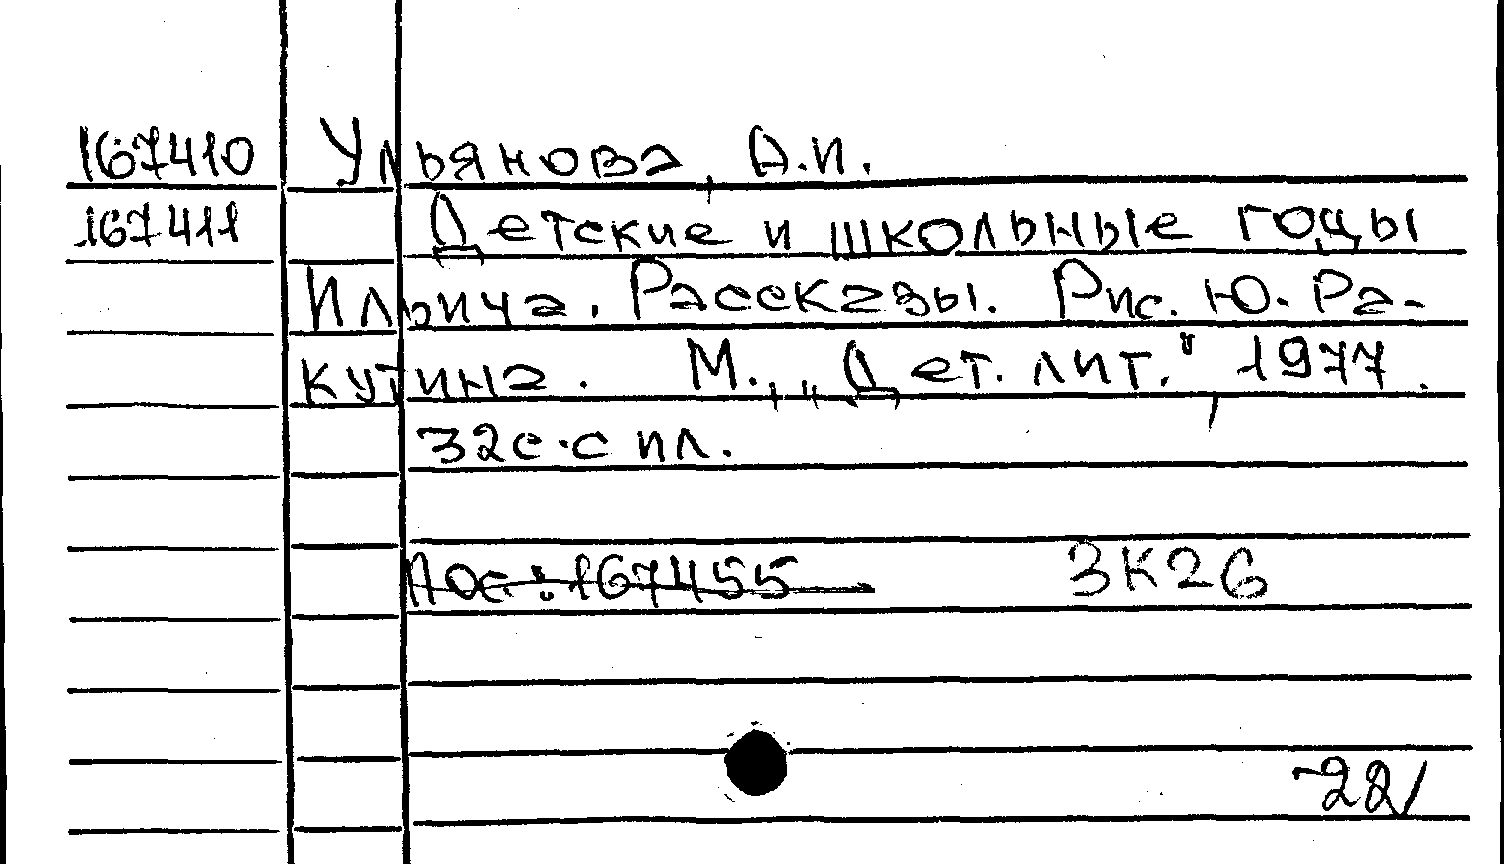 167410 Ульянова, А.И.
167411 Детские и школьные годы
Ильича. Рассказы. Рис. Ю. Ра-
кутина. М., „Дет. лит.", 1977.
32с. с ил.
ЗК26
-22/